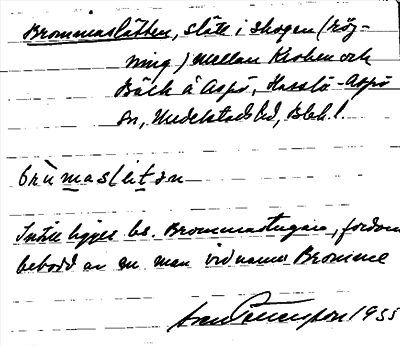 Brommaslätten, slätt i skogen (röj-
ning) mellan Kroken och
Bäck å Aspö, Hasslö-Aspö
sn, Medelstads hd, Blek l.
brùmasletən
Intill ligger bs. Brommastugan, fordom
bebodd av en man vid namn Bromme
1955